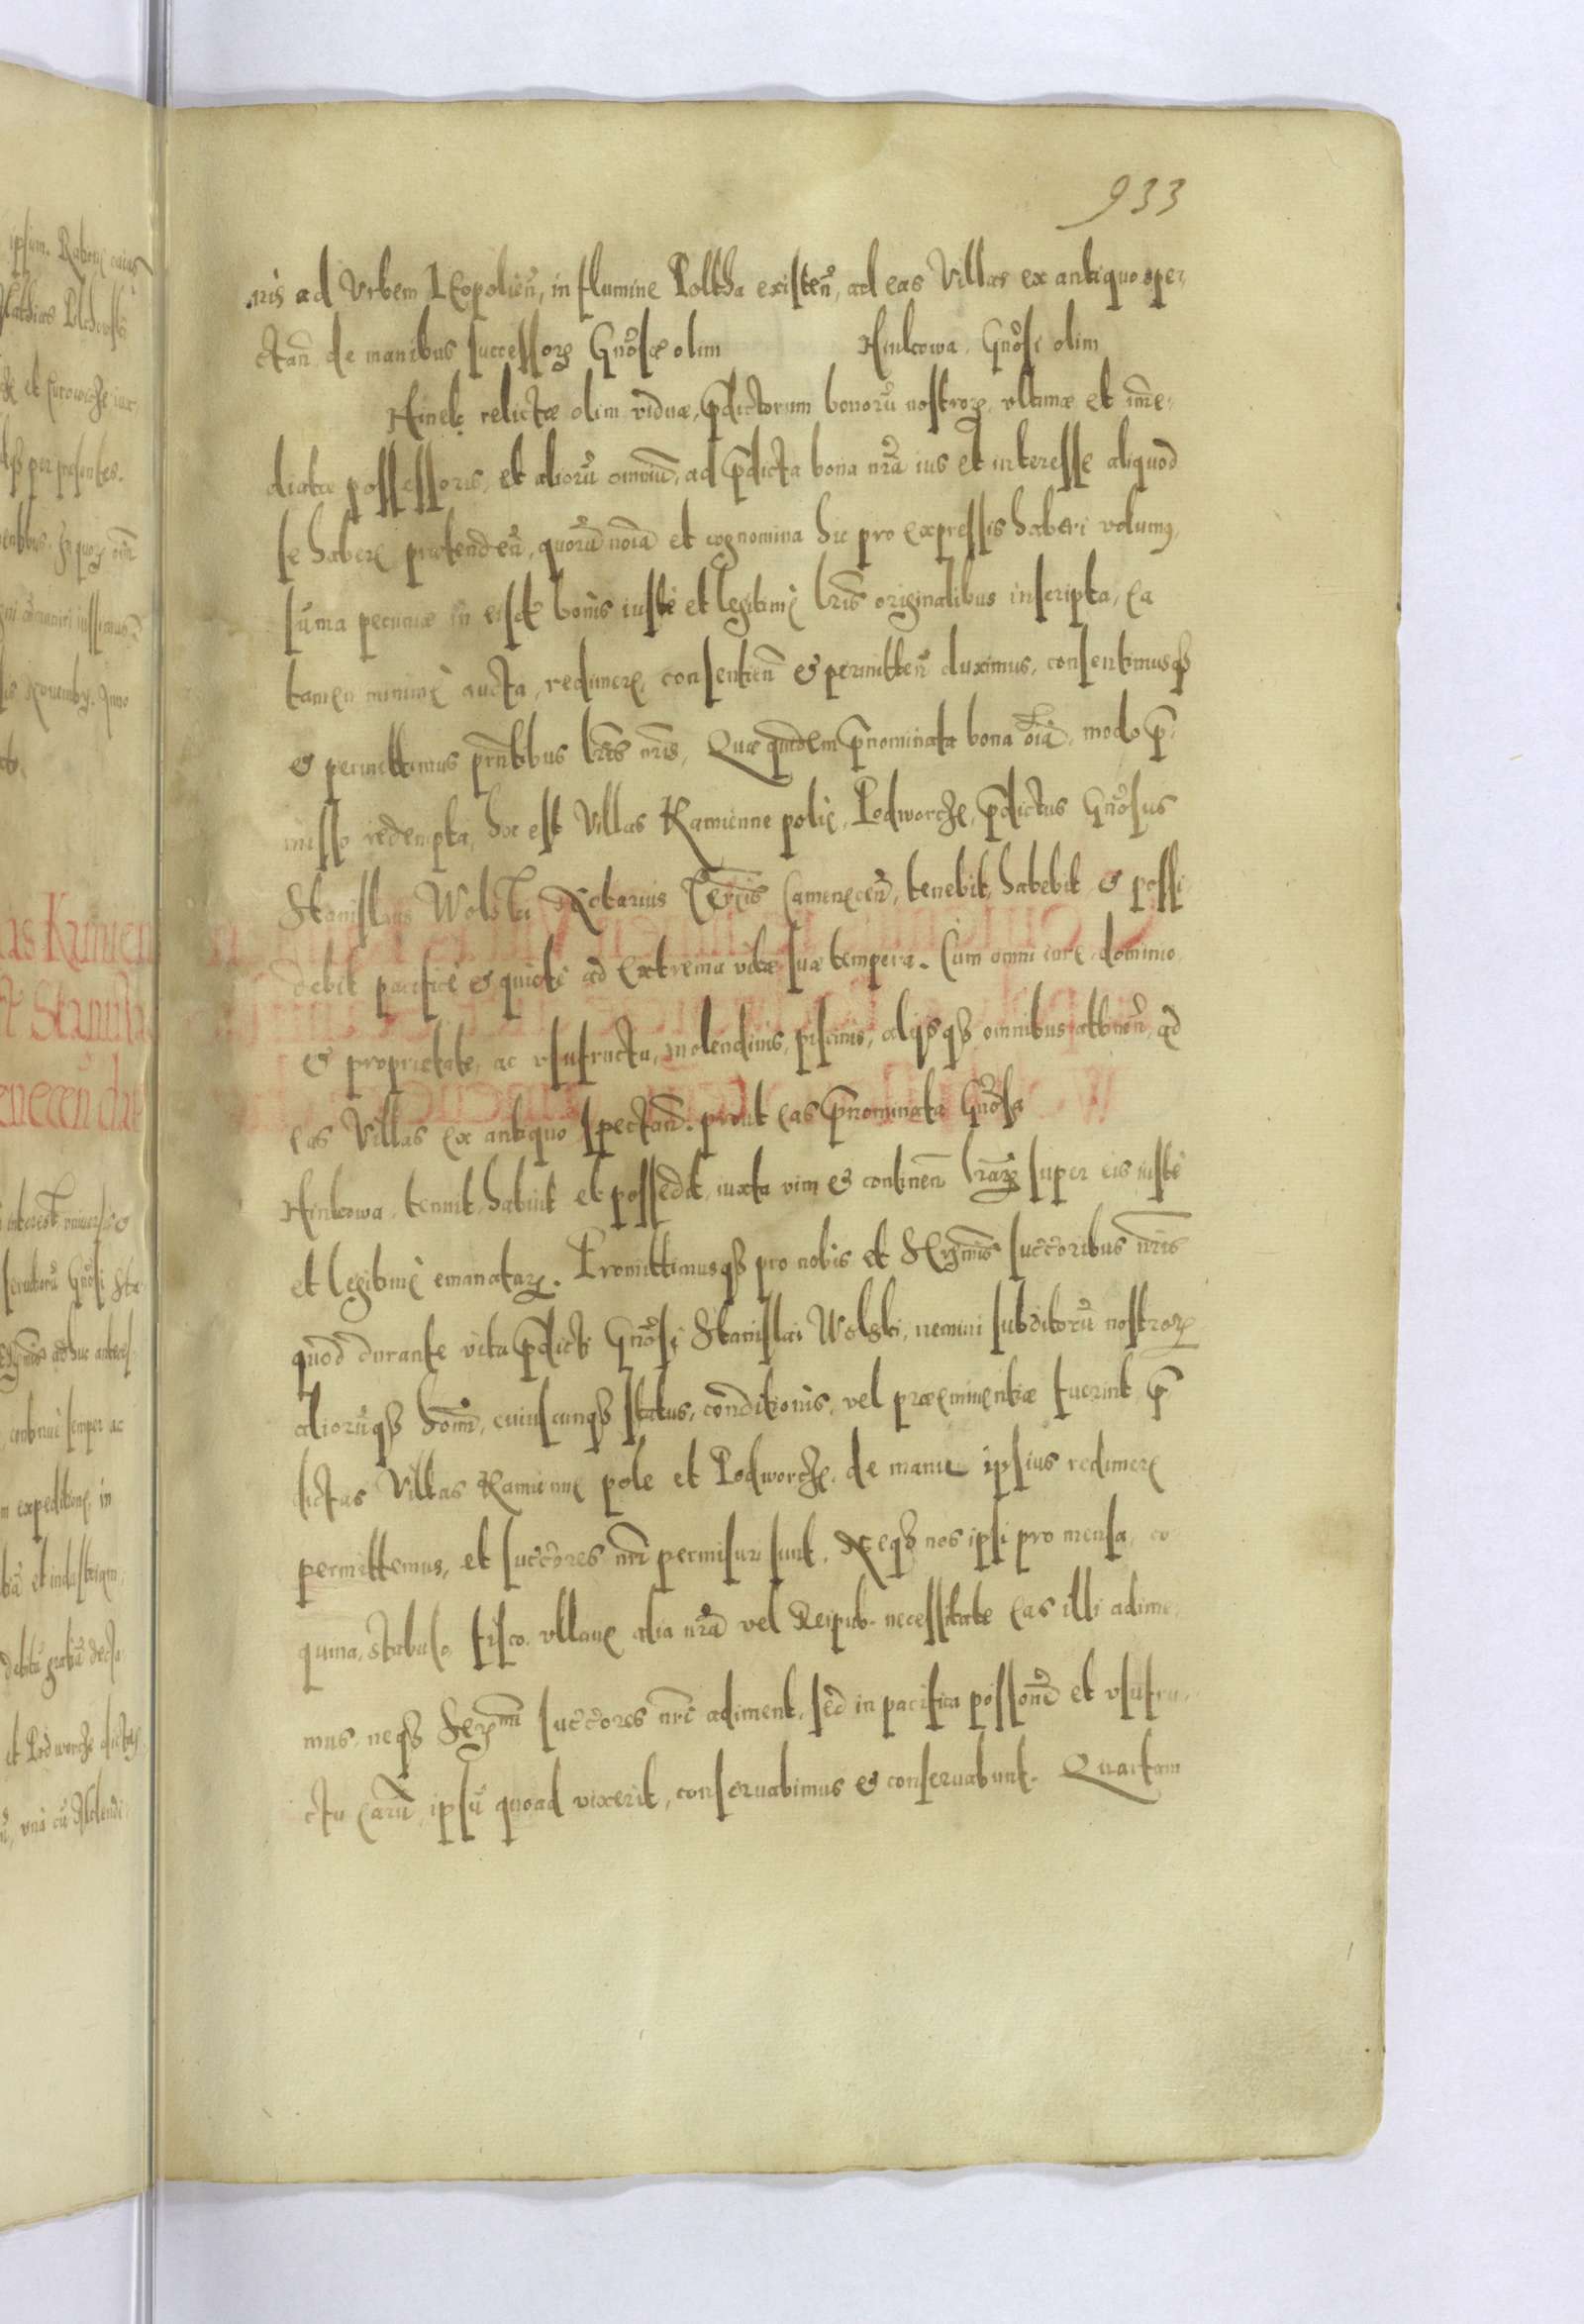 933
nis ad Vrbem Leopolieñ, in flumine Poltha existeñ, ad eas Villas ex antiquo spe-
ctañ de manibus successorꝝ Gnõsæ olim Hinkowa, Gnõsi olim
Hinek relictæ olim viduæ, p̄dictorum bonorũ nostrorꝝ vltimæ et im̃e-
diatæ possessoris, et aliorũ omniũ, ad p̄dicta bona nr̃a ius et interesse aliquod
se habere prætendeñ, quorũ noĩa et cognomina hic pro expressis haberi volumꝰ,
sum̃a pecuniæ in eisdẽ bonis iustè et legitimè lr̃is originalibus inscripta, ea
tamen minimè aucta, redimere, consentieñ & permitteñ duximus, consentimusqꝫ
& permittimus pr̃ntibus lr̃is nr̃is, Quæ quidem p̄nominata bona oĩa, modo p̄-
misso redempta, hoc est Villas Kamienne polie, Podworcze, p̄dictus Gnõsus
Stanislaus Wolski Notarius Terr̃is Cameneceñ, tenebit, habebit & possi-
debit pacificè & quietè ad extrema vitæ suæ tempora. Cum omni iure, dominio,
& proprietate, ac vsufructu, molendinis, piscinis, alijsqꝫ omnibus attineñ, ad
eas Villas ex antiquo spectañ. prout eas p̄nominata Gnõsa
Hinkowa tenuit, habuit et possedit, iuxta vim & contineñ lr̃arꝝ super eis iustè
et legitimè emanatarꝝ. Promittimusqꝫ pro nobis et Ser̃mis succ̃oribus nr̃is
quod durante vita p̄dicti Gnõsi Stanislai Wolski, nemini subditorũ nostrorꝝ
aliorũqꝫ hom̃, cuiuscunqꝫ status, conditionis, vel præeminentiæ fuerint, p̄-
dictas Villas Kamienne pole et Podworcze, de manu ipsius redimere
permittemus, et succ̃ores nr̃i permissuri sunt, Neqꝫ nos ipsi pro mensa, co-
quina, stabulo, fisco, vllaue alia nr̃a vel Reipub. necessitate eas illi adime-
mus, neqꝫ Ser̃mi succ̃ores nr̃i adiment, sed in pacifica possonẽ et vsufru-
ctu earũ, ipsũ quoad vixerit, conseruabimus & conseruabunt. Quartam